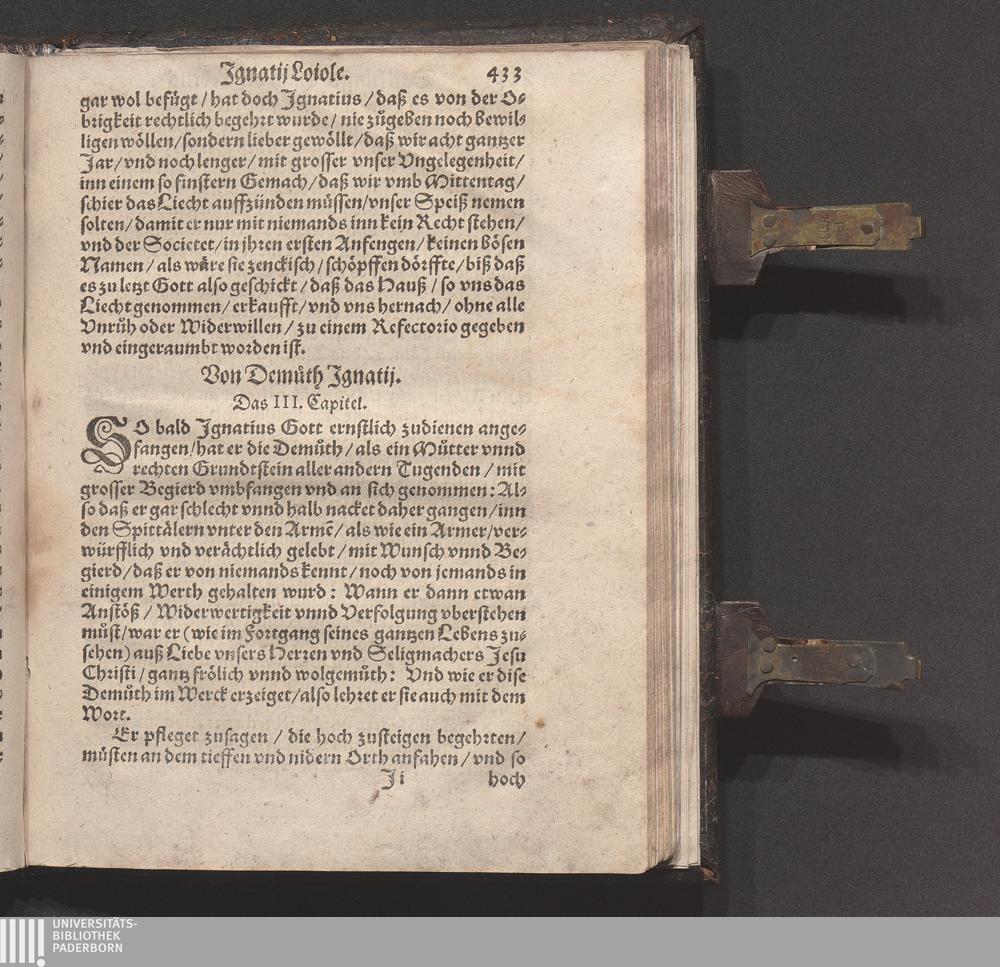 Ignatij Loiole. 433
gar wol befügt / hat doch Ignatius / daß es von der O-
brigkeit rechtlich begehrt wurde / nie zůgeben noch bewil-
ligen wöllen / sondern lieber gewöllt / daß wir acht gantzer
Jar / vnd noch lenger / mit grosser vnser Vngelegenheit /
inn einem so finstern Gemach / daß wir vmb Mittentag /
schier das Liecht auffzünden müssen / vnser Speiß nemen
solten / damit er nur mit niemands inn kein Recht stehen /
vnd der Societet / in jhren ersten Anfengen / keinen bösen
Namen / als wåre sie zenckisch / schöpffen dörffte / biß daß
es zu letzt Gott also geschickt / daß das Hauß / so vns das
Liecht genommen / erkaufft / vnd vns hernach / ohne alle
Vnrůh oder Widerwillen / zu einem Refectorio gegeben
vnd eingeraumbt worden ist.
Von Demůth Ignatij.
Das III. Capitel.
SO bald Ignatius Gott ernstlich zudienen ange-
fangen / hat er die Demůth / als ein Můtter vnnd
rechten Grundtstein aller andern Tugenden / mit
grosser Begierd vmbfangen vnd an sich genommen: Al-
so daß er gar schlecht vnnd halb nacket daher gangen / inn
den Spittålern vnter den Armẽ / als wie ein Armer / ver-
würfflich vnd veråchtlich gelebt / mit Wunsch vnnd Be-
gierd / daß er von niemands kennt / noch von jemands in
einigem Werth gehalten wurd: Wann er dann etwan
Anstöß / Widerwertigkeit vnnd Verfolgung vberstehen
můst / war er (wie im Fortgang seines gantzen Lebens zu-
sehen) auß Liebe vnsers Herren vnd Seligmachers Jesu
Christi / gantz frölich vnnd wolgemůth: Vnd wie er dise
Demůth im Werck erzeiget / also lehret er sie auch mit dem
Wort.
Er pfleget zusagen / die hoch zusteigen begehrten /
müsten an dem tieffen vnd nidern Orth anfahen / vnd so
Ji hoch
UNIVERSITÄTS-
BIBLIOTHEK
PADERBORN